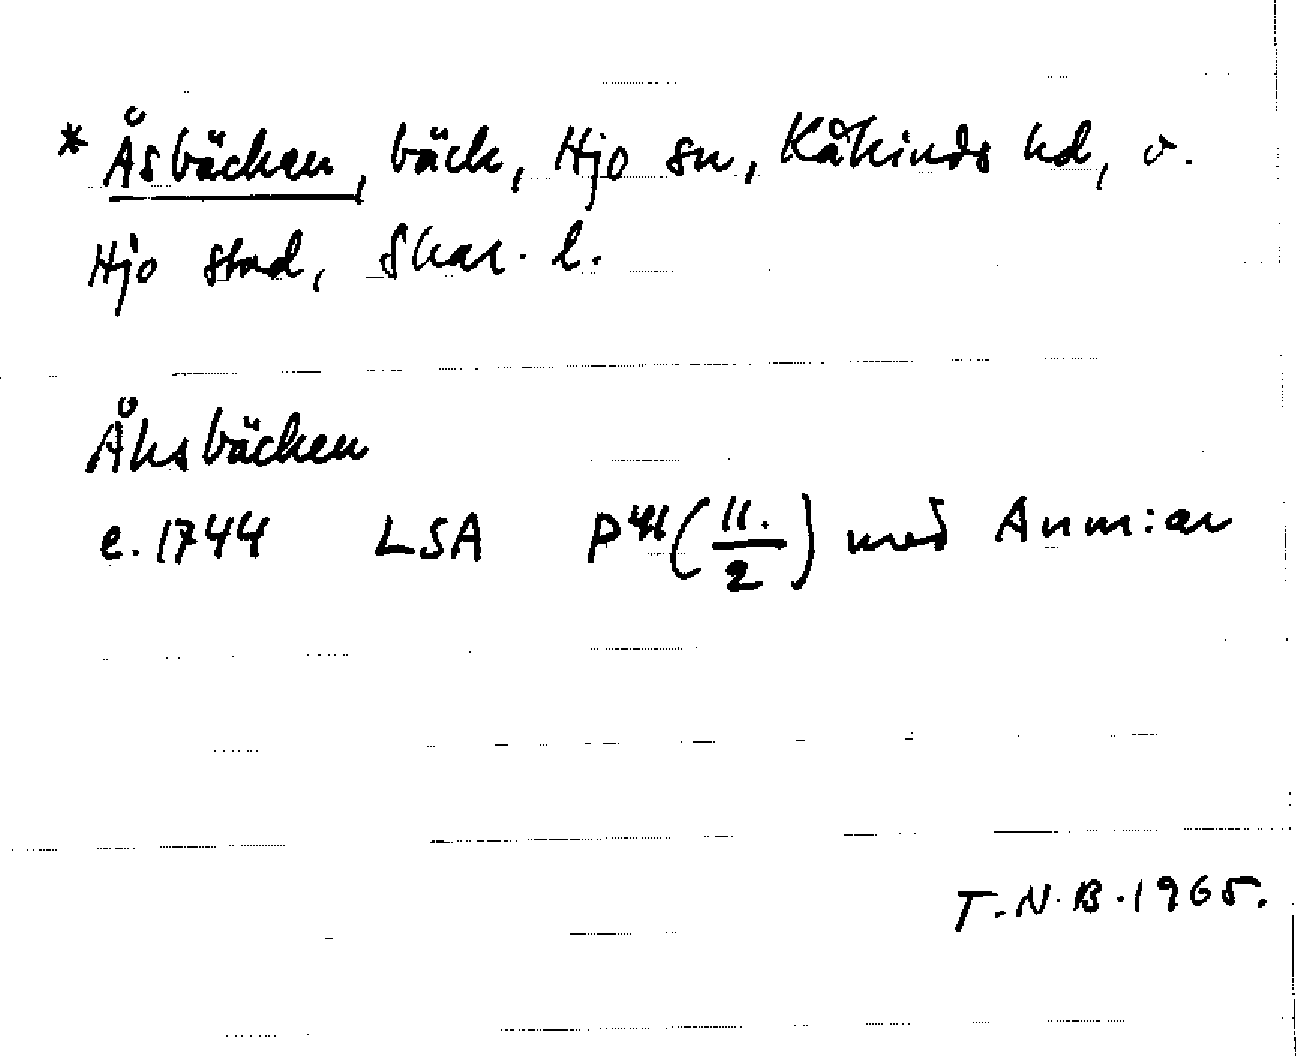 * Åsbäcken, bäck, Hjo sn, Kåkinds hd, o.
Hjo stad, Skar. l.
Åhsbäcken
e. 1744 LSA P41 (11./2) med Anm:ar
T.N.B. 1965.